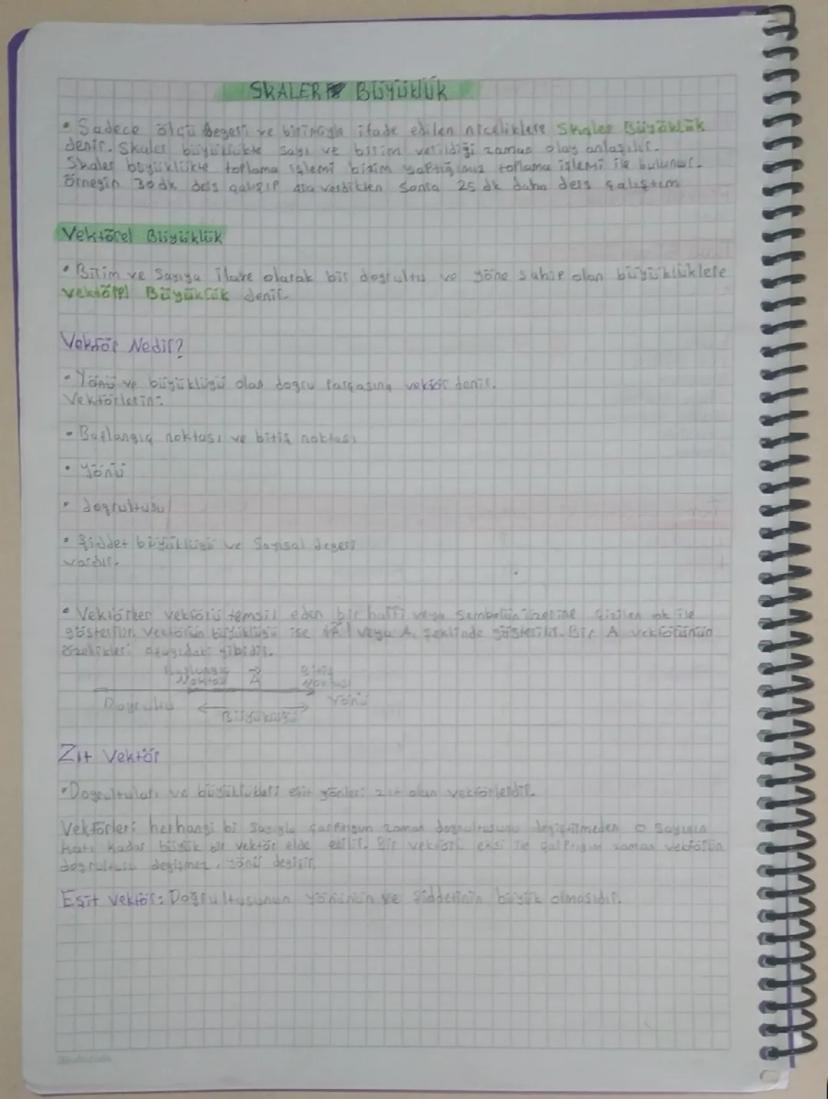 SKALER BÜYÜKLÜK
• Sadece ölçü değeri ve birimiyle ifade edilen niceliklere Skaler Büyüklük
denir. Skaler büyüklükte sayı ve birim verildiği zaman olay anlaşılır.
Skaler büyüklükte toplama işlemi bizim yaptığımız toplama işlemi ile bulunur.
Örneğin 30 dk ders çalışıp ara verdikten sonra 25 dk daha ders çalıştım
Vektörel Büyüklük
• Birim ve Sayıya ilave olarak bir doğrultu ve yöne sahip olan büyüklüklere
vektörel Büyüklük denir.
Vektör Nedir?
• Yönü ve büyüklüğü olan doğru parçasına vektör denir.
Vektörlerin:
• Başlangıç noktası ve bitiş noktası
• Yönü
• doğrultusu
• Şiddet büyüklüğü ve Sayısal değeri
vardır.
• Vektörler vektörü temsil eden bir harfi veya Sembolün üzerine çizilen ok ile
gösterilir. Vektörün büyüklüğü ise veya A şeklinde gösterilir. Bir A vektörünün
özelikleri aşağıdaki gibidir.
Başlangıç Noktası A Bitiş Noktası
Doğrultu Büyüklüğü Yönü
Zıt Vektör
• Doğrultuları ve büyüklükleri eşit yönleri zıt olan vektörlerdir.
Vektörleri herhangi bi Sayıyla çarptığın zaman doğrultusunu değiştirmeden o sayının
katı kadar büyük bir vektör elde edilir. Bir vektörü eksi ile çarptığın zaman vektörün
doğrultusu değişmez, yönü değişir.
Eşit vektör: Doğrultusunun yönünün ve Şiddetinin büyük olmasıdır.